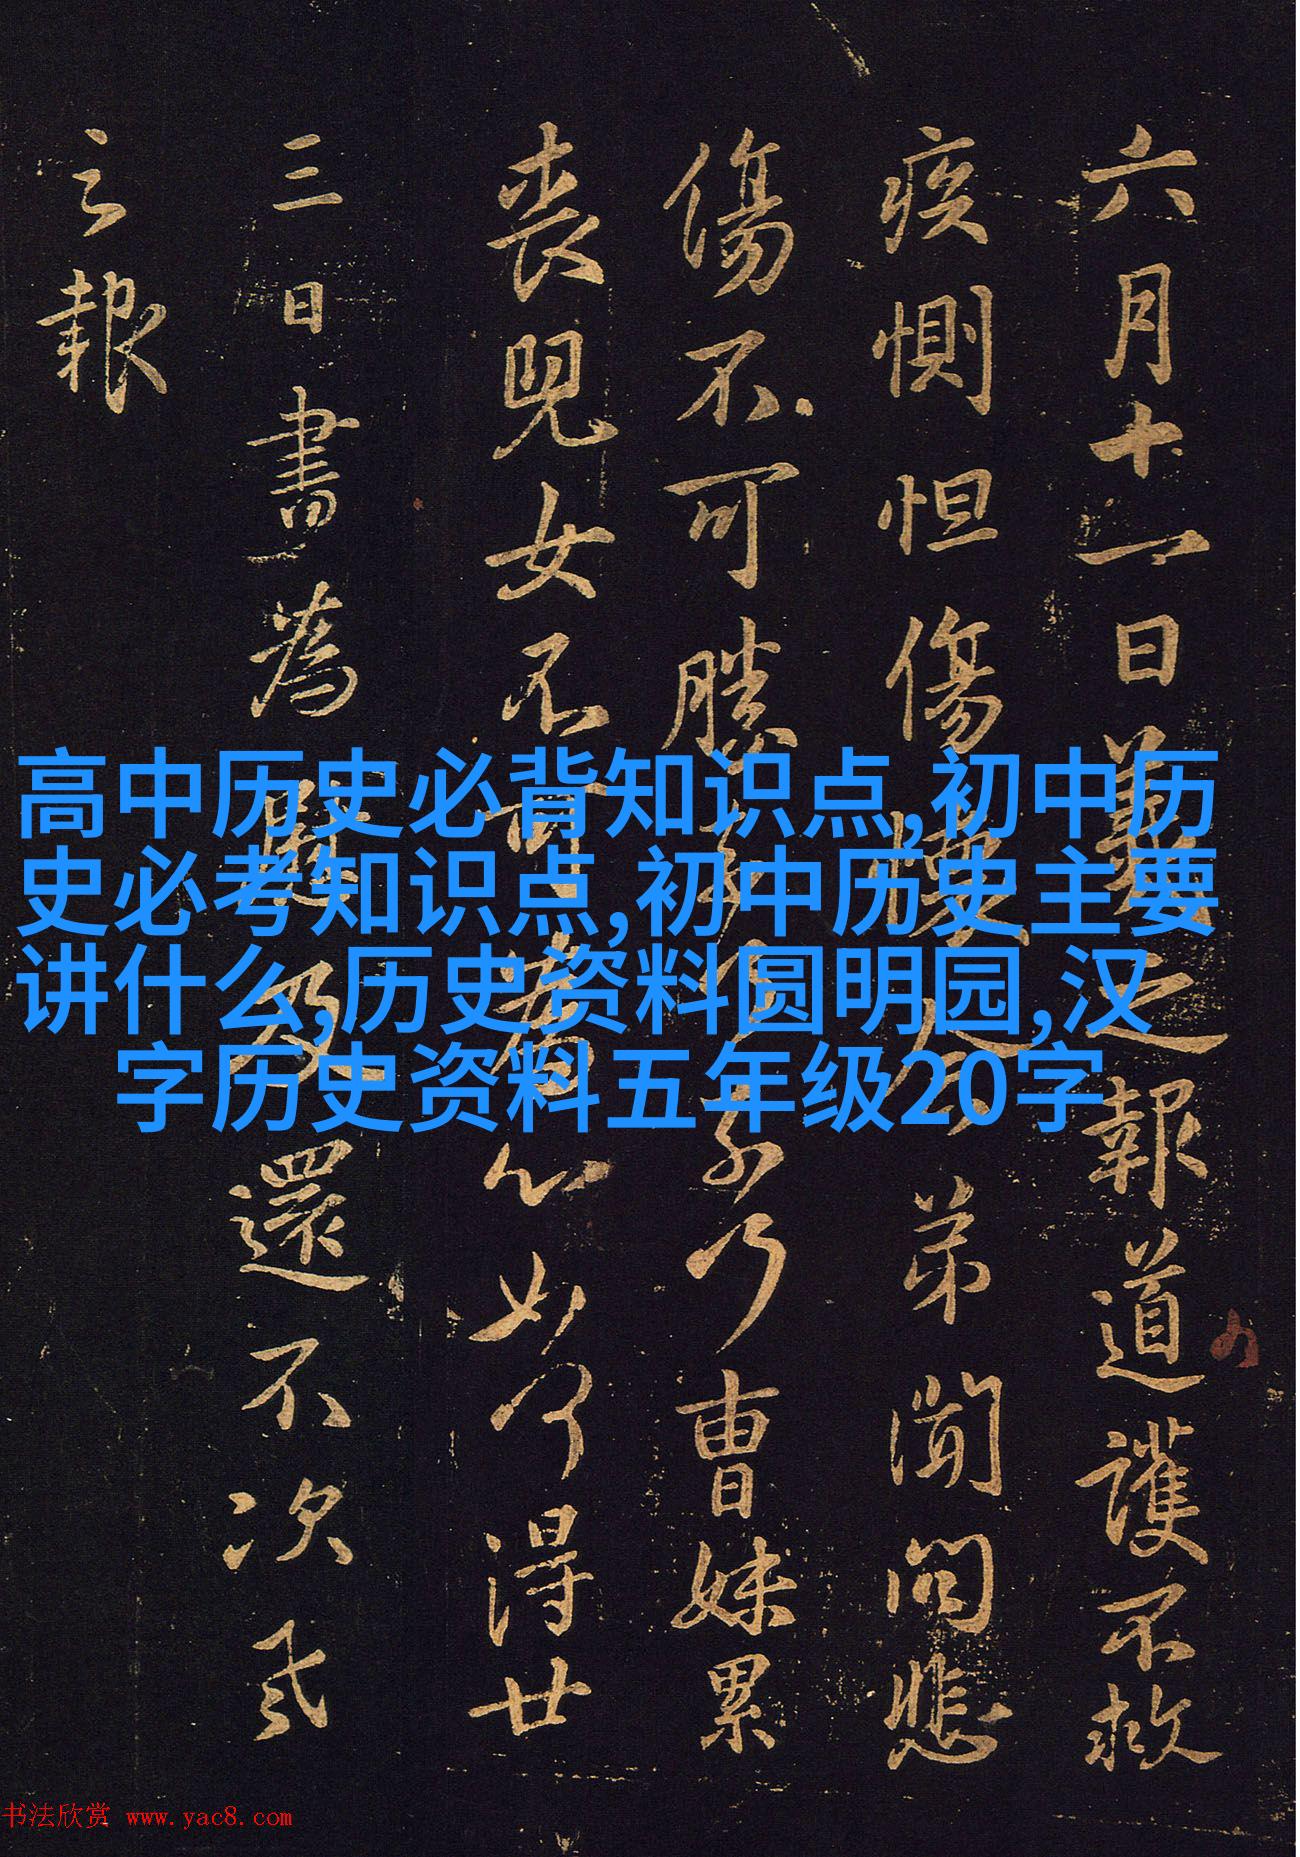 六月十一日羲之報道護不救
疾惻怛傷懷
弟聞問悲
傷不可勝
乃曹妹累
喪兒女不可
心如何得廿
三日書為
還不次羲
之報
高中历史必背知识点,初中历
史必考知识点,初中历史主要
讲什么,历史资料圆明园,汉
字历史资料五年级20字
书法欣赏 www.yac8.com